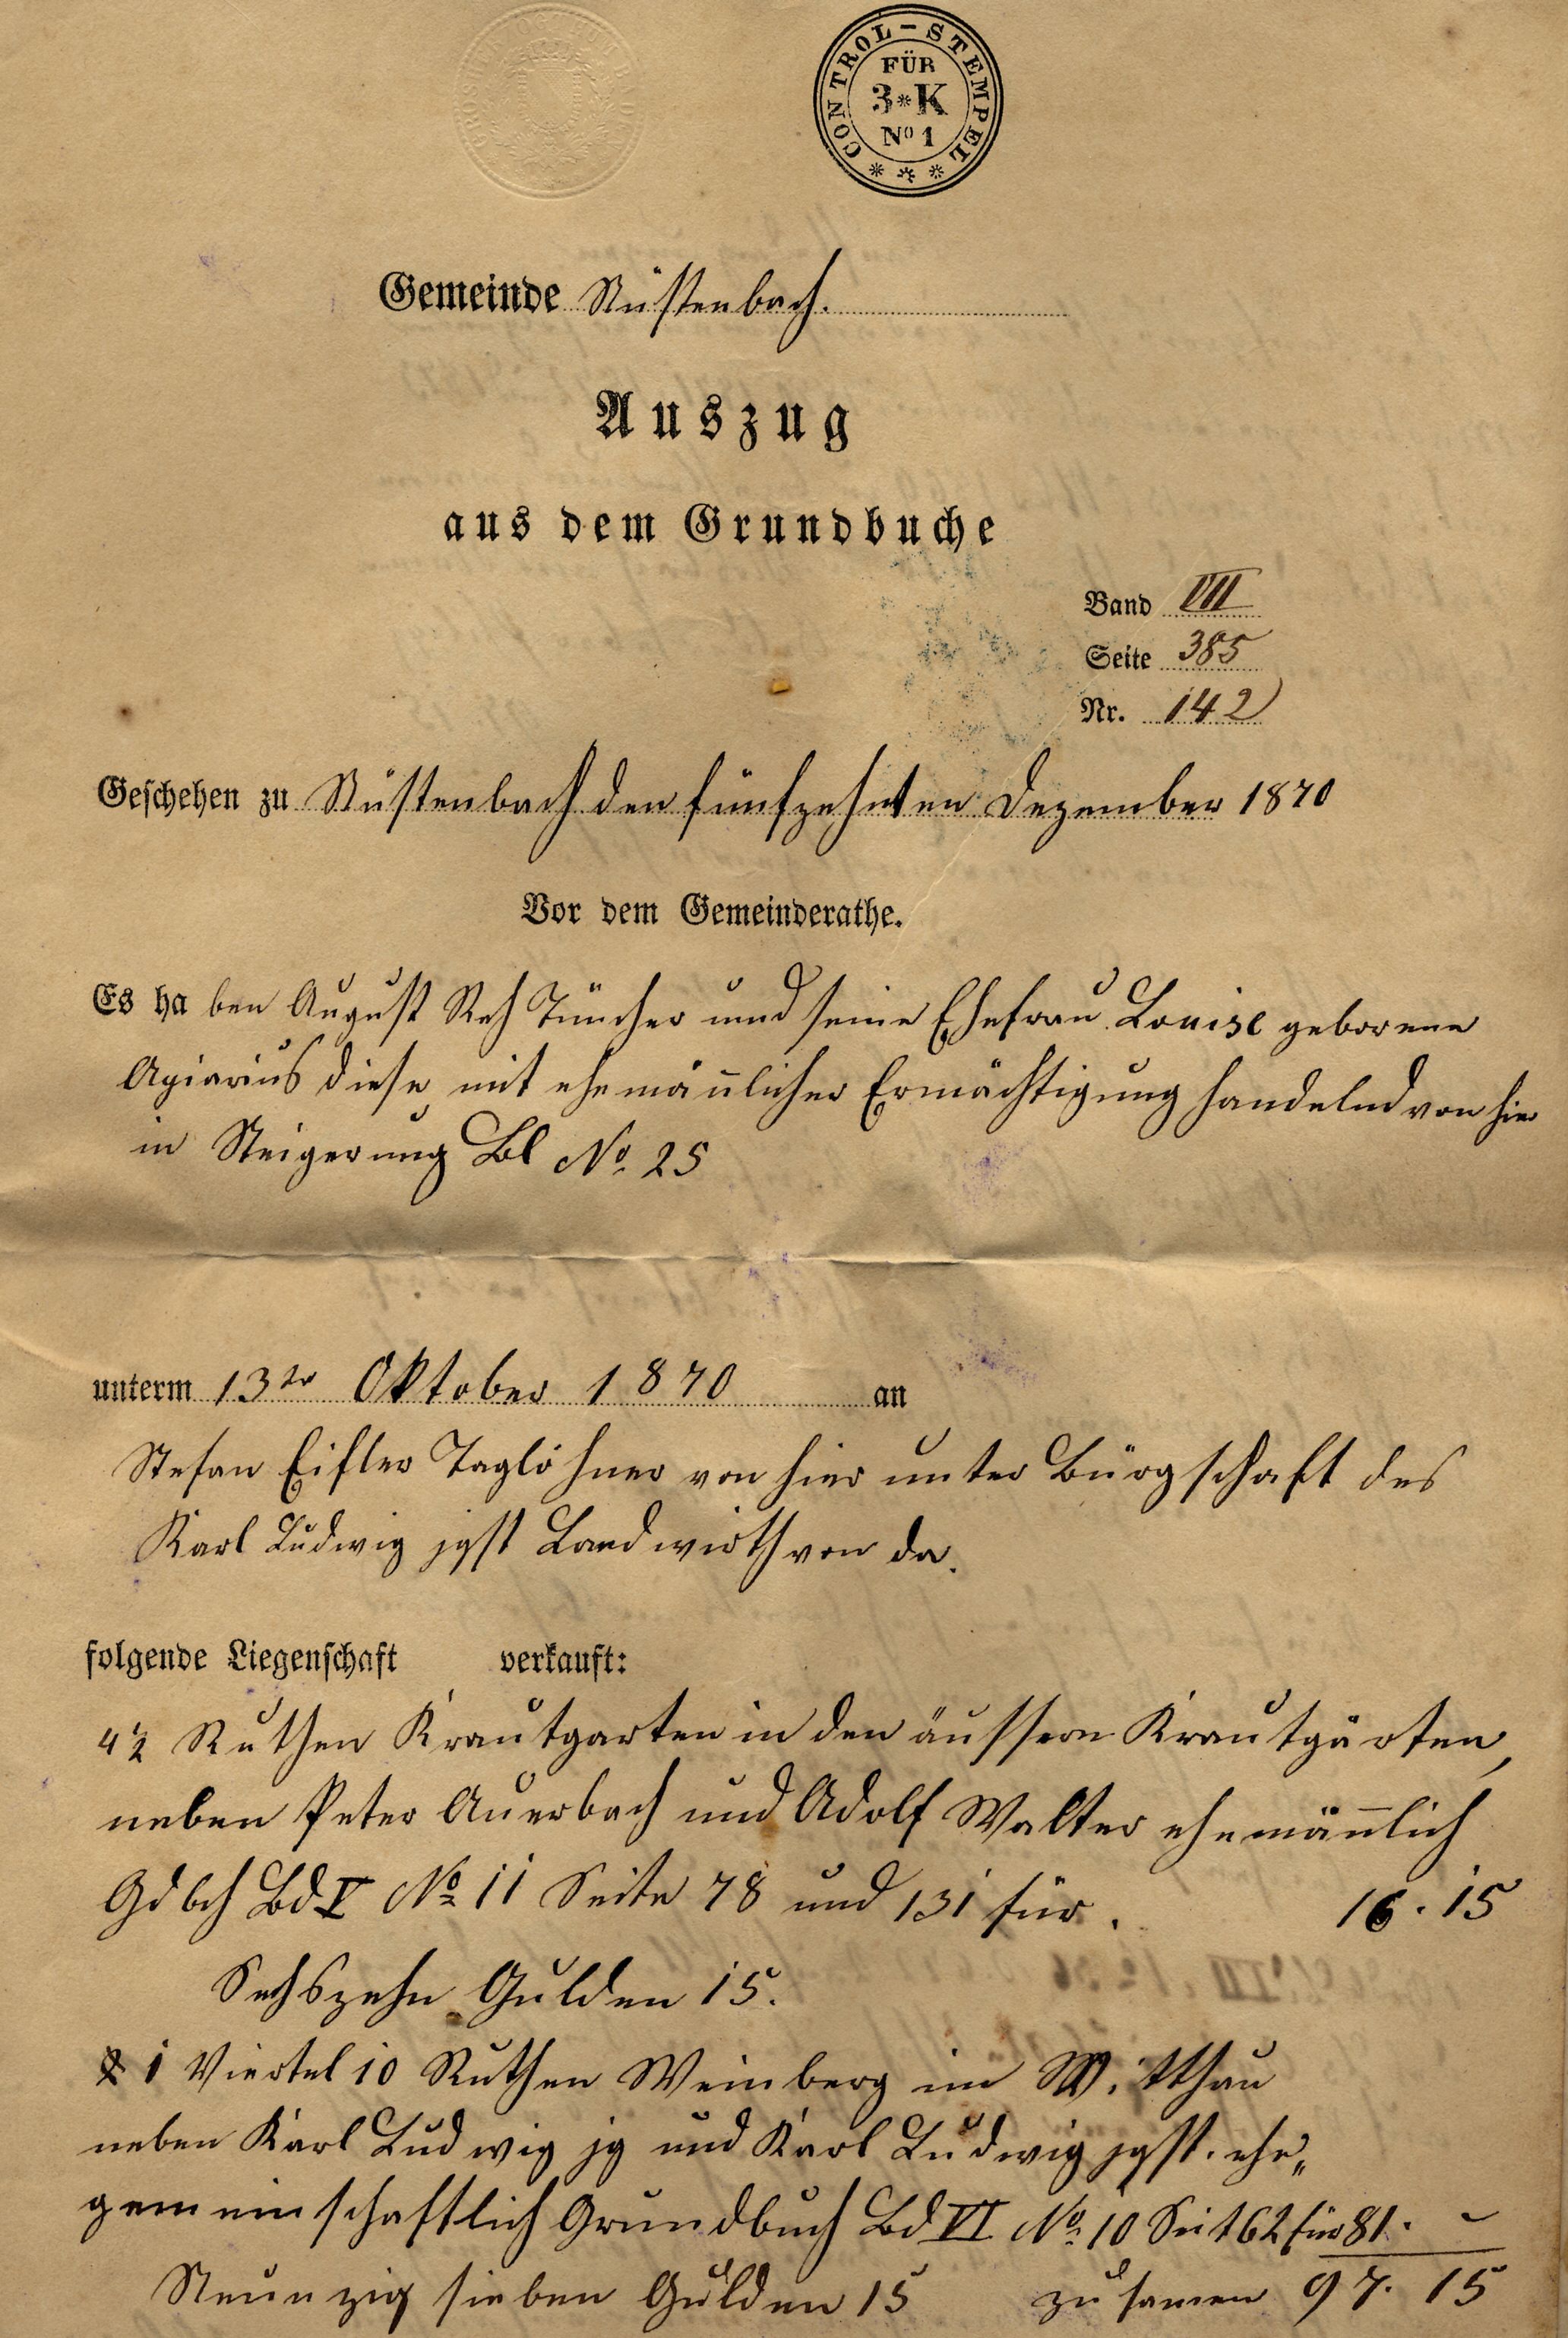 CONTROL-STEMPEL
FÜR
3*K
No 1
Gemeinde Nüstenbach.
Auszug
aus dem Grundbuche
Band VII
Seite 385
Nr. 142
Geschehen zu Nüstenbach den fünfzehnten Dezember 1870
Vor dem Gemeinderathe.
Es haben August Reh Tüncher und seine Ehefrau Louise geborene
Apiarius diese mit ehemännlicher Ermächtigung handelnd von hier
in Steigerung Bl No. 25
unterm 13ten Oktober 1870 an
Stefan Eifler Taglöhner von hier unter Bürgschaft des
Karl Ludwig jgst Landwirth von da.
folgende Liegenschaft verkauft:
42 Ruthen Krautgarten in den äussern Krautgärten,
neben Peter Auerbach und Adolf Walter ehemännlich
Gdbch Bd V No 11 Seite 78 und 131 für. 16. 15
Sechszehn Gulden 15.
1 Viertel 10 Ruthen Weinberg im
neben Karl Ludwig jg und Karl Ludwig jgst. ehe„
gemeinschaftlich Grundbuch Bd VI No. 10 Seit 62 für 81. –
Neunzig sieben Gulden 15 zusamen 97. 15